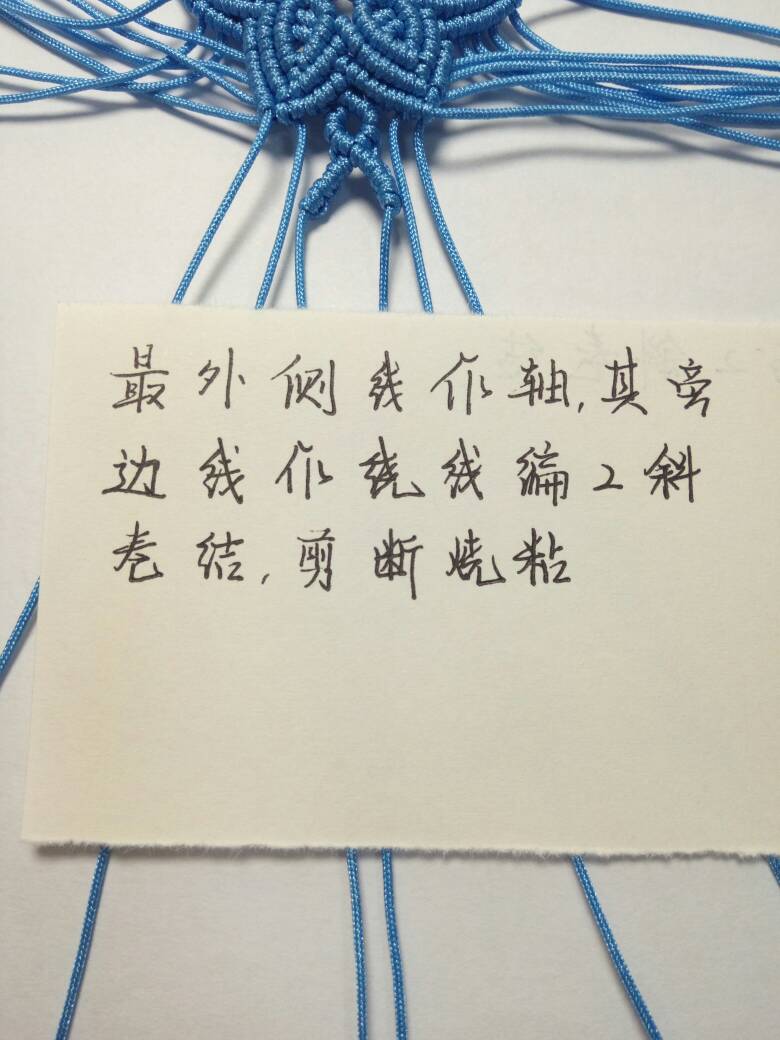 最外侧线作轴,其旁
边线作绕线编2斜
卷结,剪断烧粘